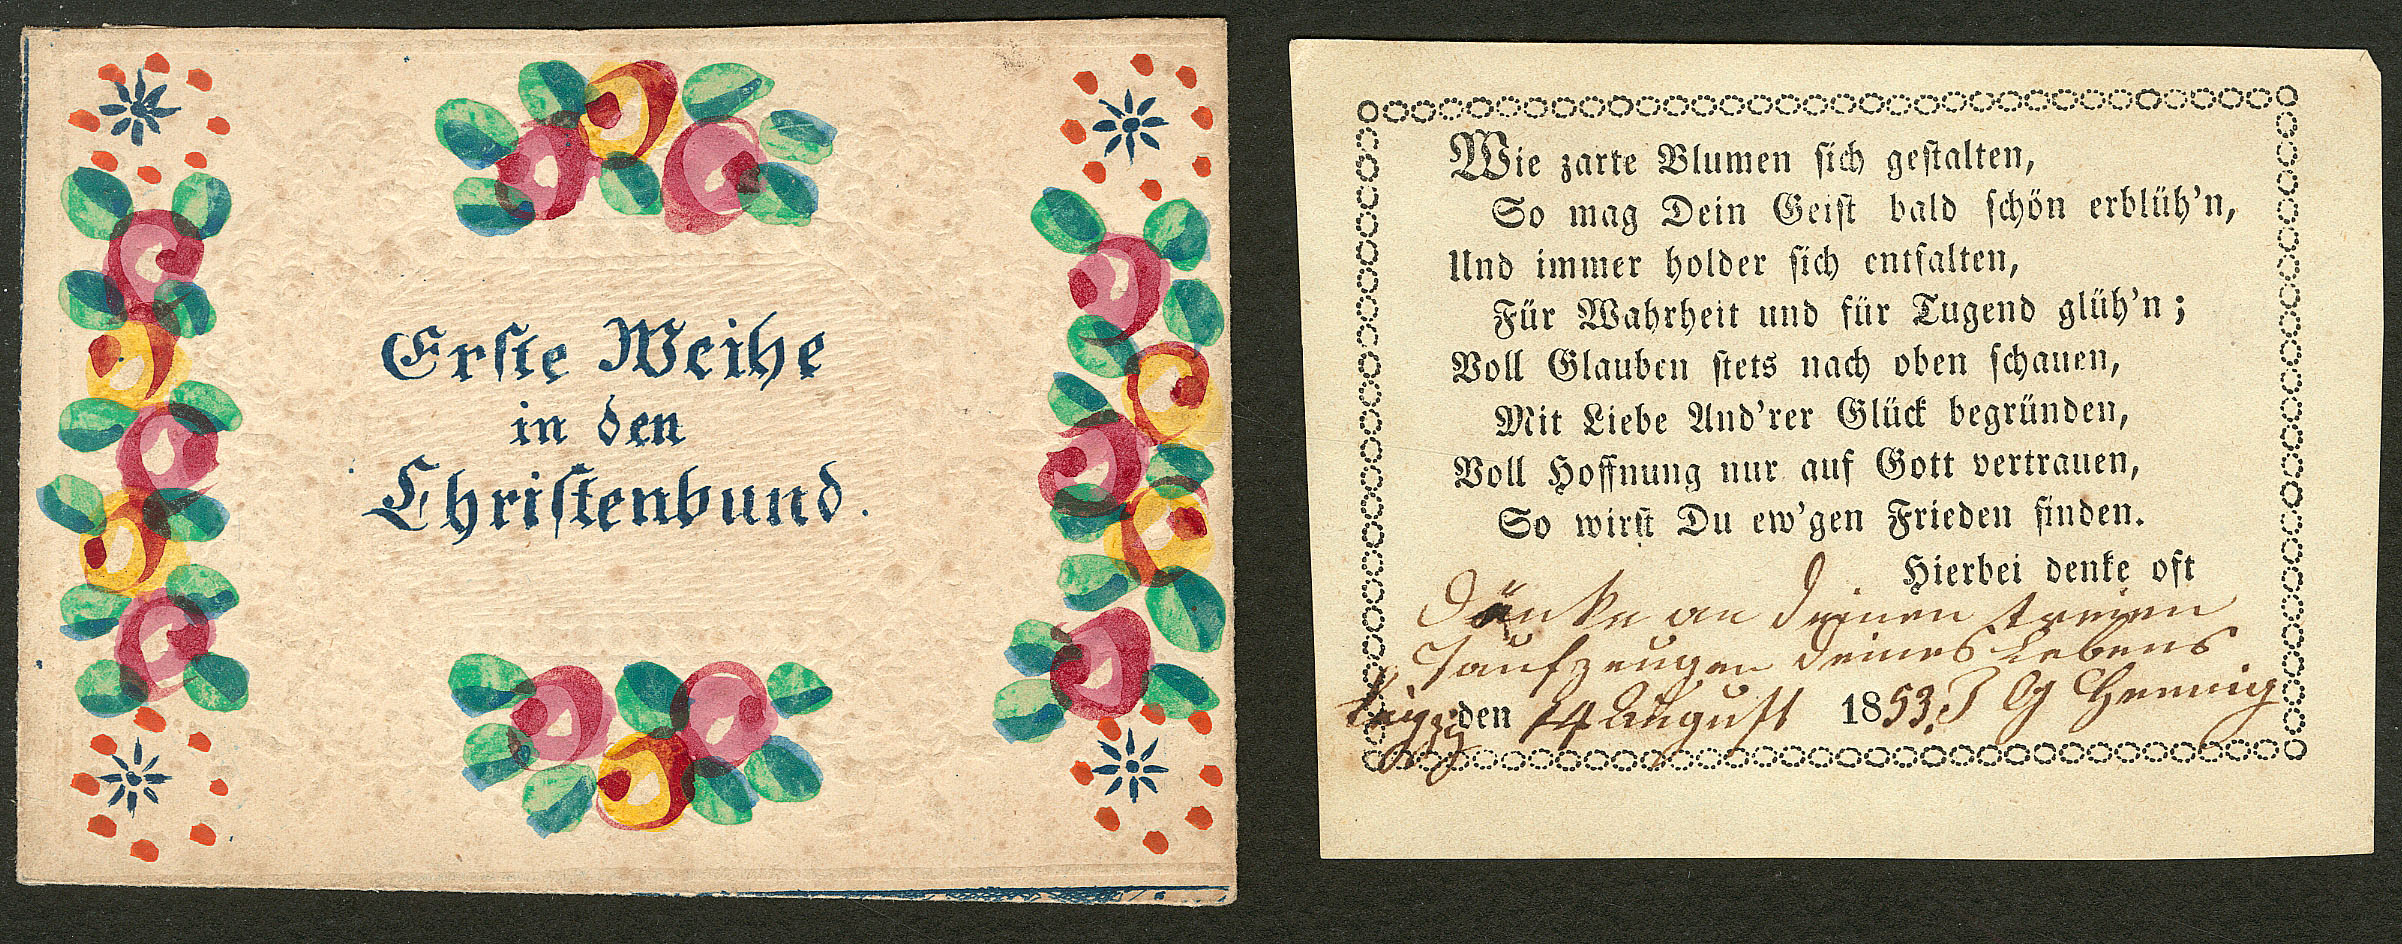 Erste Weihe
in den
Christenbund.
Wie zarte Blumen sich gestalten,
So mag Dein Geist bald schön erblüh'n,
Und immer holder sich entfalten,
Für Wahrheit und für Tugend glüh'n;
Voll Glauben stets nach oben schauen,
Mit Liebe And'rer Glück begründen,
Voll Hoffnung nur auf Gott vertrauen,
So wirst Du ew'gen Frieden finden.
Hierbei denke oft
Dänke an deinen treien
Taufzeugen deines Lebens
den 14 August 1853. J G Hennig